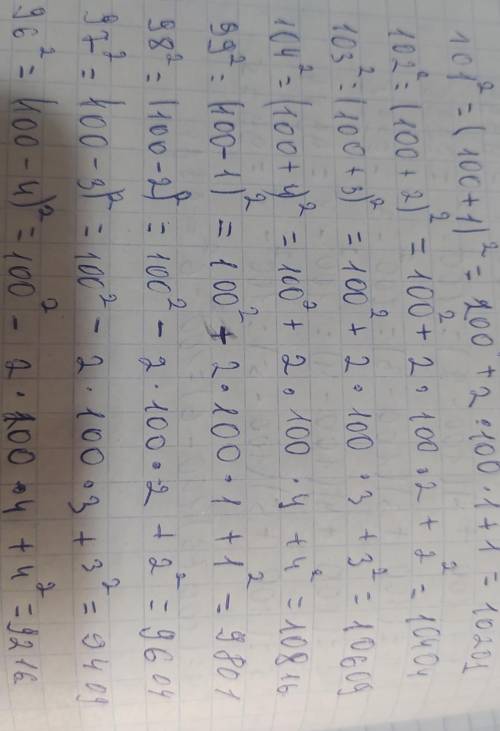 101² = (100+1)² = 100² + 2·100·1+1 = 10201
102² = (100+2)² = 100² + 2·100·2 + 2² = 10404
103² = (100+3)² = 100² + 2·100·3 + 3² = 10609
104² = (100+4)² = 100² + 2·100·4 + 4² = 10816
99² = (100-1)² = 100² + 2·100·1 + 1² = 9801
98² = (100-2)² = 100² - 2·100·2 + 2² = 9604
97² = (100-3)² = 100² - 2·100·3 + 3² = 9409
96² = (100-4)² = 100² - 2·100·4 + 4² = 9216